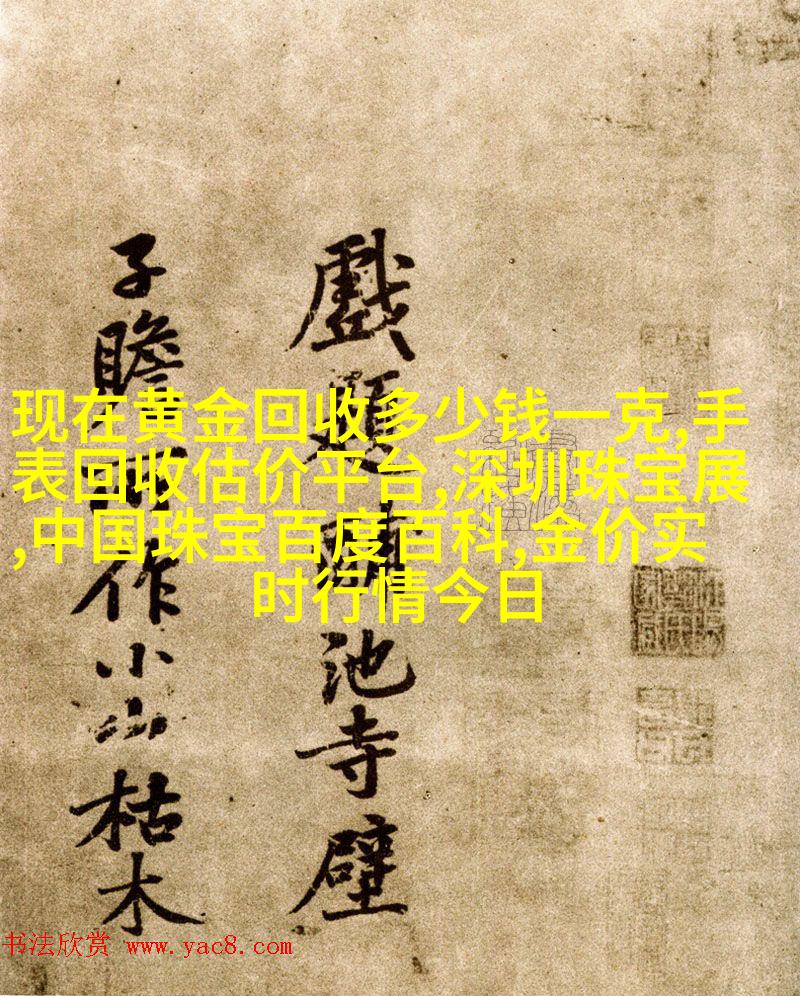 戲題池寺壁
子瞻作小山枯木
现在黄金回收多少钱一克,手
表回收估价平台,深圳珠宝展
,中国珠宝百度百科,金价实
时行情今日
书法欣赏 www.yac8.com